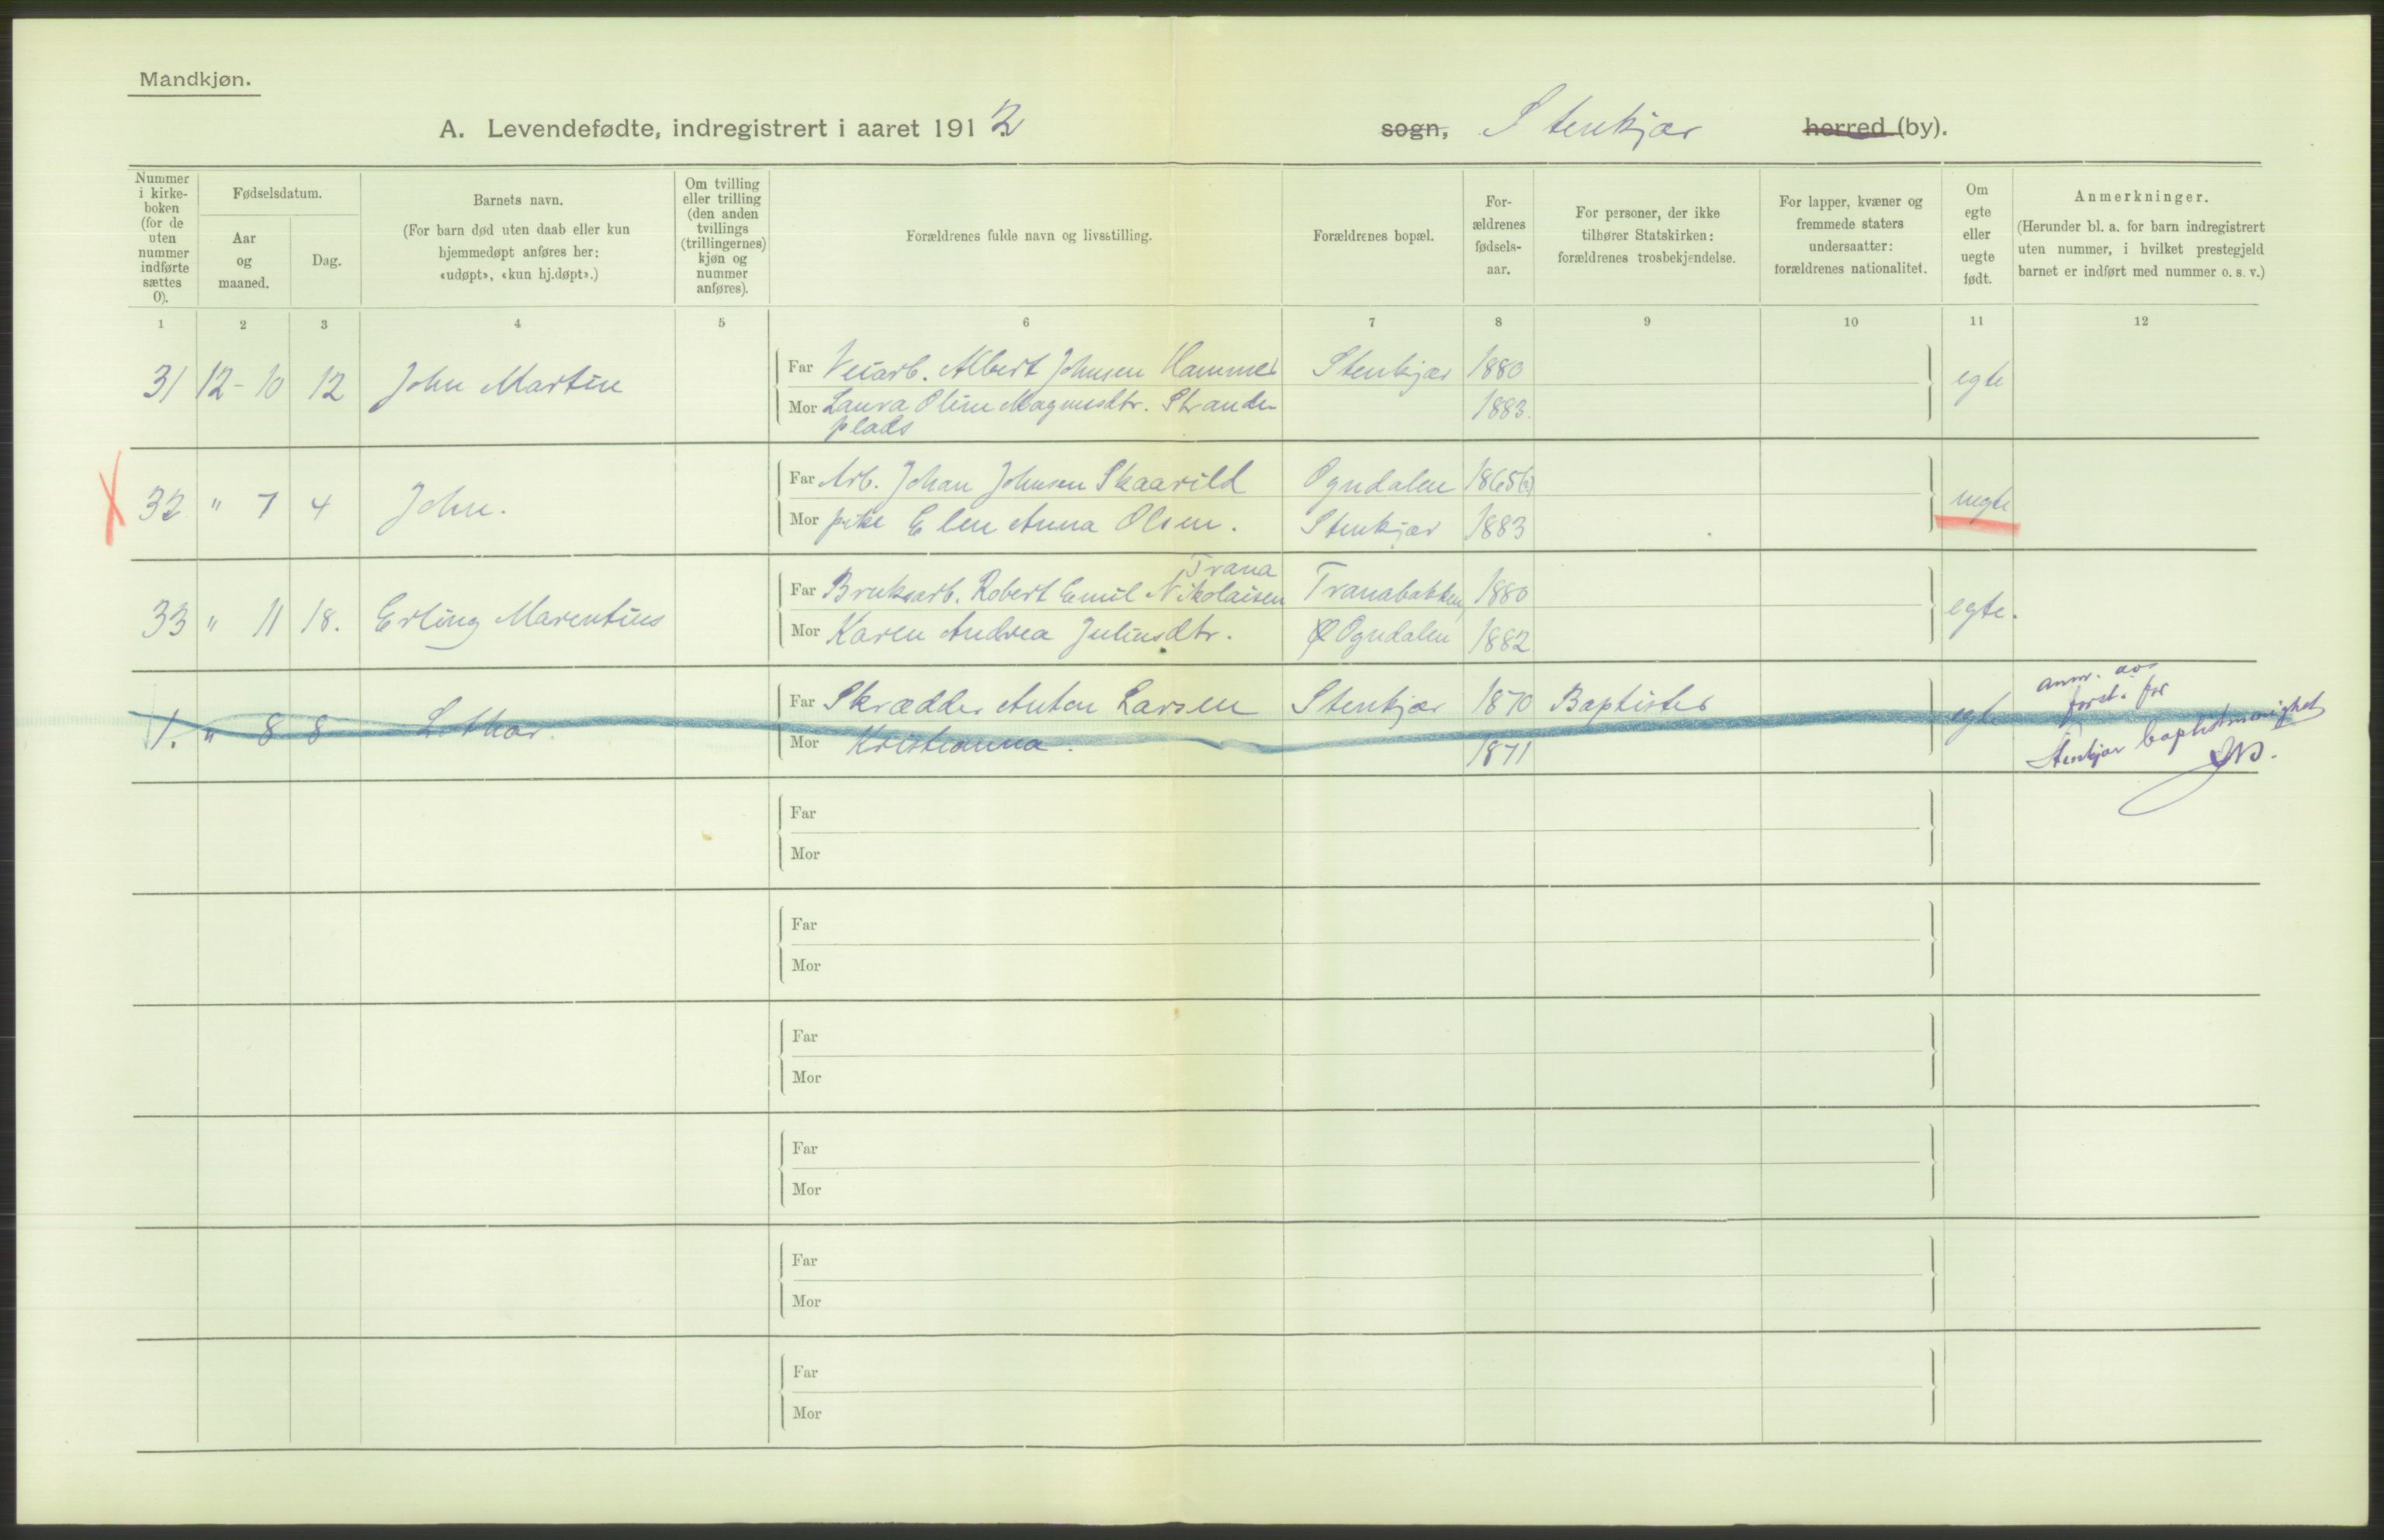 Mandkjøn.
A. Levendefødte, indregistrert i aaret 1912 sogn, Stenkjær herred (by).
Nummer i kirke-boken (for de uten nummer indførte sættes 0).
Fødselsdatum.
Aar og maaned.
Dag.
Barnets navn.
(For barn død uten daab eller kun hjemmedøpt anføres her: «udøpt», «kun hj.døpt».)
Om tvilling eller trilling (den anden tvillings (trillingernes) kjøn og nummer anføres).
Forældrenes fulde navn og livsstilling.
Forældrenes bopæl.
For-ældrenes fødsels-aar.
For personer, der ikke tilhører Statskirken: forældrenes trosbekjendelse.
For lapper, kvæner og fremmede staters undersaatter: forældrenes nationalitet.
Om egte eller uegte født.
Anmerkninger.
(Herunder bl. a. for barn indregistrert uten nummer, i hvilket prestegjeld barnet er indført med nummer o. s. v.)
1 2 3 4 5 6 7 8 9 10 11 12
31 12-10 12 John Martin Far Veiarb. Albert Johnsen Hammer Stenkjær 1880 egte
Mor Laura Oline Magnusdtr. Strande- 1883.
plads
32 " 7 4 John. Far Arb. Johan Johnsen Skaarild Ogndalen 1865(?) uegte
Mor pike Elen Anna Olsen. Stenkjær 1883
Trana
33 " 11 18. Erling Marentius Far Bruksarb. Robert Emil Nikolaisen Tranabakken, 1880 egte.
Mor Karen Andrea Juliusdtr. Ogndalen 1882
1. " 8 8 Lothar. Far Skrædder Anton Larsen Stenkjær 1870 Baptister egte
Mor Kristianna. 1871
anm. av
forst. for
Stenkjær baptistmenighet
Far
Mor
Far
Mor
Far
Mor
Far
Mor
Far
Mor
Far
Mor